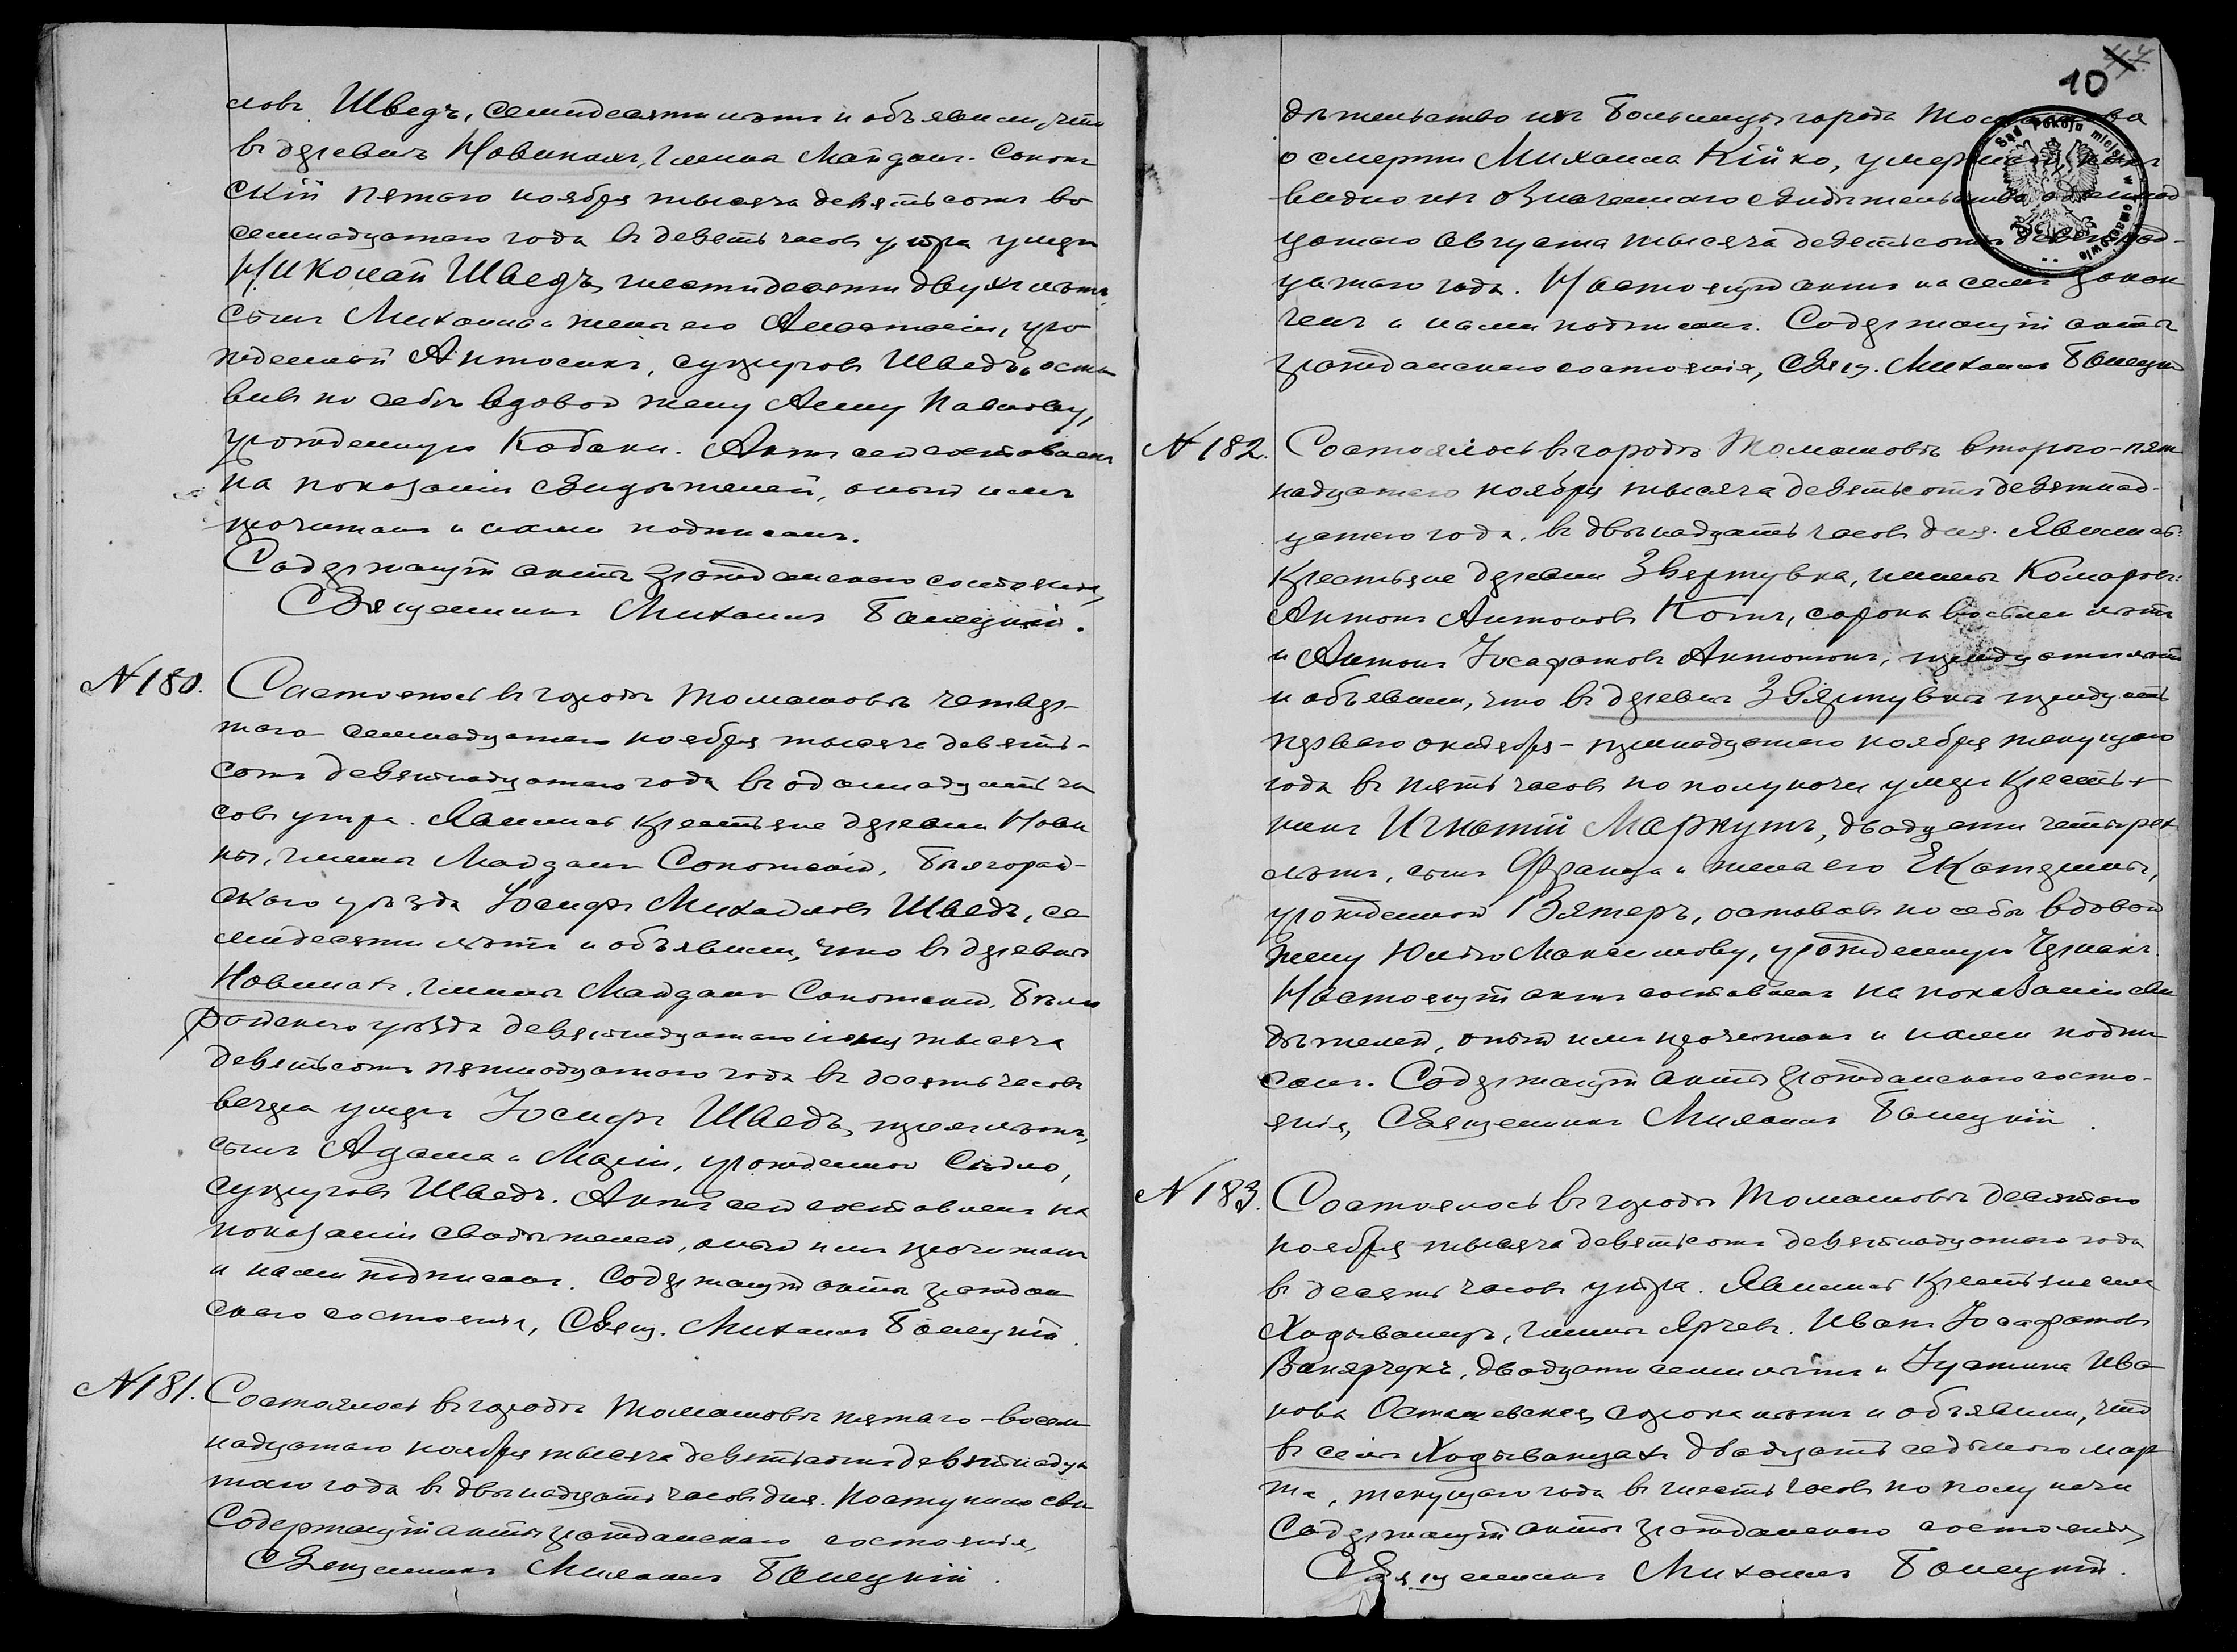 ловъ Шведъ, семидесяти лѣтъ и объявили, что
въ деревнѣ Новинахъ, гмина Майданъ-Сопот-
скій пятаго ноября тысяча девятьсотъ во
семнадцатаго года въ девять часовъ утра умеръ
Николай Шведъ, шестидесяти двухъ лѣтъ,
сынъ Михаила и жены его Анастасіи, уро
жденной Антосикъ, супруговъ Шведъ, оста
вивъ по себѣ вдовой жену Анну Павлову,
урожденную Кобаки. Актъ сей составленъ
на показаніи свидѣтелей, оный имъ
прочитанъ и нами подписанъ.
Содержащій акты гражданскаго состоянія,
Священникъ Михаилъ Бонецкій.
N 180. Состоялось въ городѣ Томашовѣ четвер-
таго семнадцатаго ноября тысяча девять-
сотъ девятнадцатаго года въ одиннадцать ча
совъ утра. Явились крестьяне деревни Нови
ны, гмины Майданъ Сопотскій, Бѣлгорай-
скаго уѣзда Іосифъ Михайловъ Шведъ, се
мидесяти лѣтъ и объявили, что въ деревнѣ
Новинахъ, гмины Майданъ Сопотскій, Бѣлго
райскаго уѣзда девятнадцатаго іюня тысяча
девятьсотъ пятнадцатаго года въ десять часовъ
вечера умеръ Іосифъ Шведъ, трехъ лѣтъ,
сынъ Адама и Маріи, урожденной
супруговъ Шведъ. Актъ сей составленъ на
показаніи свидѣтелей, оный имъ прочитанъ
и нами подписанъ. Содержащій акты граждан
скаго состоянія, Свящ. Михаилъ Бонецкій.
N 181. Состоялось въ городѣ Томашовѣ пятаго-восем
надцатаго ноября тысяча девятьсотъ девятнадца
таго года въ двѣнадцать часовъ дня. Поступило сви
Содержащій акты гражданскаго состоянія,
Священникъ Михаилъ Бонецкій.
10
дѣтельство изъ Больницы города
о смерти Михаила Кійко, умершаго, какъ
видно изъ означеннаго свидѣтельства
цатаго августа тысяча девятьсотъ девятнад-
цатаго года. Настоящій актъ на семъ закон
ченъ и нами подписанъ. Содержащій акты
гражданскаго состоянія, Свящ. Михаилъ Бонецкій
Sąd Pokoju miejski w Tomaszowie
N 182. Состоялось въ городѣ Томашовѣ второго-пят
надцатаго ноября тысяча девятьсотъ девятнад-
цатаго года, въ двѣнадцать часовъ дня. Явились:
крестьяне деревни Звяртувка, гмины Комаровъ:
Антонъ Антоновъ Котъ, сорока восьми лѣтъ
и Антонъ Іосафатовъ Антонюкъ, тридцати лѣтъ
и объявили, что въ деревнѣ Звяртувкѣ тридцать
перваго октября-тринадцатаго ноября текущаго
года въ пять часовъ по полуночи умеръ крестья
нинъ Игнатій Маркутъ, двадцати четырехъ
лѣтъ, сынъ Франца и жены его Екатерины,
урожденной Вятеръ, оставивъ по себѣ вдовой
жену Юлію Максимову, урожденную
Настоящій актъ составленъ на показаніи сви
дѣтелей, оный имъ прочитанъ и нами подпи
санъ. Содержащій акты гражданскаго состо-
янія, Священникъ Михаилъ Бонецкій.
N 183. Состоялось въ городѣ Томашовѣ десятаго
ноября тысяча девятьсотъ девятнадцатаго года
въ десять часовъ утра. Явились крестьяне села
Ходыванцы, гмины Ярчевъ. Иванъ Іосафатовъ
двадцати семи лѣтъ и Іустина Ива
нова Осташевская, сорока лѣтъ и объявили, что
въ селѣ Ходыванцахъ двадцать седьмого мар
та, текущаго года въ шесть часовъ по полуночи
Содержащій акты гражданскаго состоянія,
Священникъ Михаилъ Бонецкій.